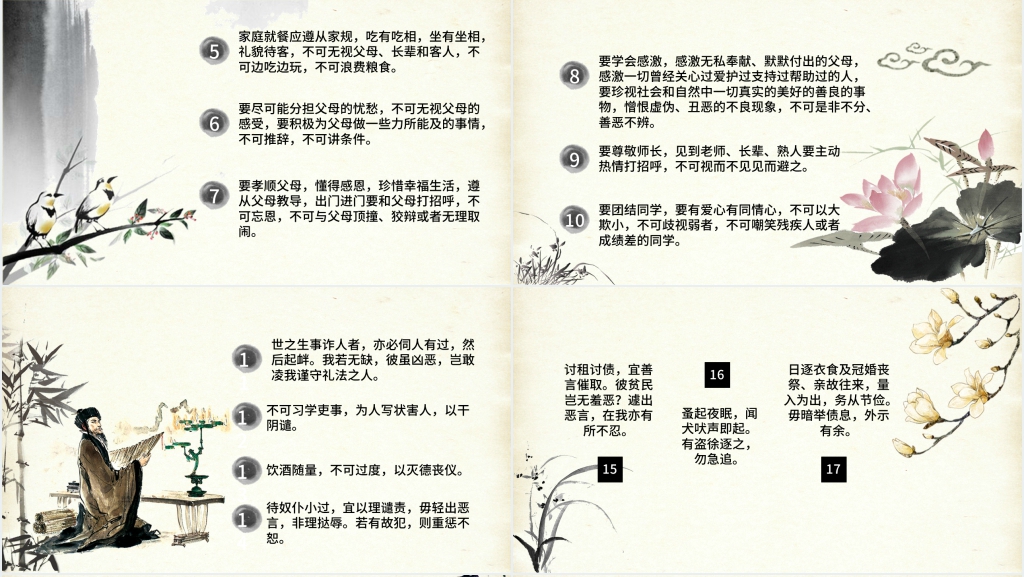 5
家庭就餐应遵从家规，吃有吃相，坐有坐相，
礼貌待客，不可无视父母、长辈和客人，不
可边吃边玩，不可浪费粮食。
6
要尽可能分担父母的忧愁，不可无视父母的
感受，要积极为父母做一些力所能及的事情，
不可推辞，不可讲条件。
7
要孝顺父母，懂得感恩，珍惜幸福生活，遵
从父母教导，出门进门要和父母打招呼，不
可忘恩，不可与父母顶撞、狡辩或者无理取
闹。
8
要学会感激，感激无私奉献、默默付出的父母，
感激一切曾经关心过爱护过支持过帮助过的人，
要珍视社会和自然中一切真实的美好的善良的事
物，憎恨虚伪、丑恶的不良现象，不可是非不分、
善恶不辨。
9
要尊敬师长，见到老师、长辈、熟人要主动
热情打招呼，不可视而不见见而避之。
10
要团结同学，要有爱心有同情心，不可以大
欺小，不可歧视弱者，不可嘲笑残疾人或者
成绩差的同学。
1
世之生事诈人者，亦必伺人有过，然
后起衅。我若无缺，彼虽凶恶，岂敢
凌我谨守礼法之人。
1
不可习学吏事，为人写状害人，以干
阴谴。
1
饮酒随量，不可过度，以灭德丧仪。
1
待奴仆小过，宜以理谴责，毋轻出恶
言，非理挞辱。若有故犯，则重惩不
恕。
讨租讨债，宜善
言催取。彼贫民
岂无羞恶？遽出
恶言，在我亦有
所不忍。
15
16
蚤起夜眠，闻
犬吠声即起。
有盗徐逐之，
勿急追。
日逐衣食及冠婚丧
祭、亲故往来，量
入为出，务从节俭。
毋暗举债息，外示
有余。
17